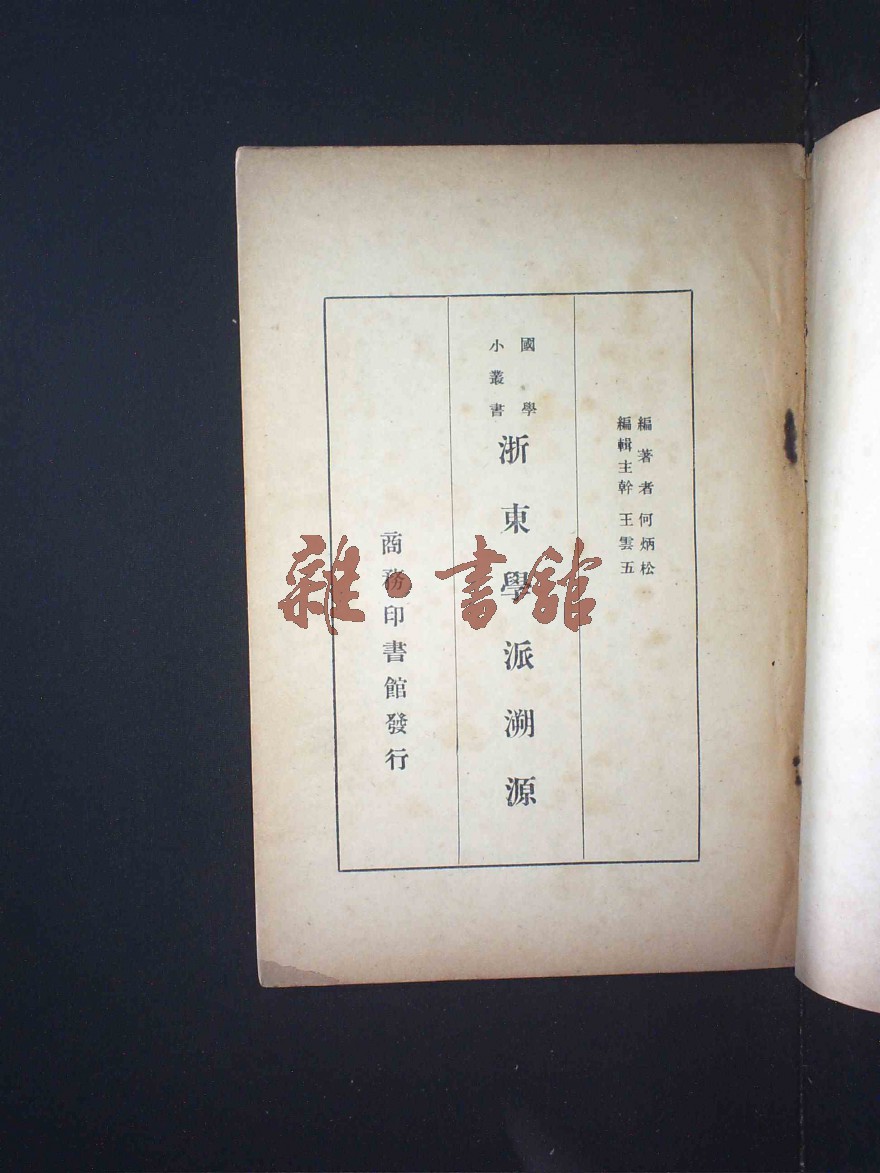 編著者何炳松
編輯主幹王雲五
國學
小叢書
浙東學派溯源
商務印書館發行
雜·書館